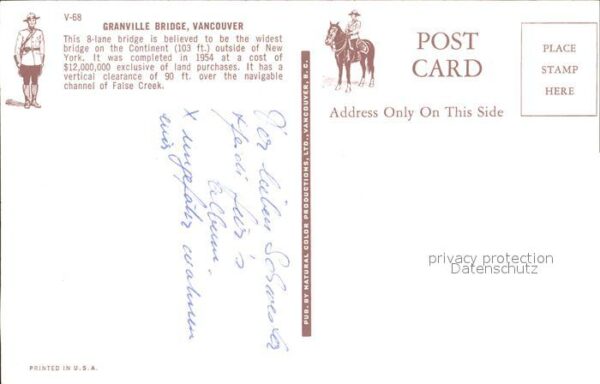 V-68
GRANVILLE BRIDGE, VANCOUVER
This 8-lane bridge is believed to be the widest
bridge on the Continent (103 ft.) outside of New
York. It was completed in 1954 at a cost of
$12,000,000 exclusive of land purchases. It has a
vertical clearance of 90 ft. over the navigable
channel of False Creek.
POST
CARD
Address Only On This Side
PLACE
STAMP
HERE
PUB. BY NATURAL COLOR PRODUCTIONS, LTD., VANCOUVER, B. C.
Der lieben Schwester
Heidi für's
Album.
X ungefähr wohnen
wir
privacy protection
Datenschutz
PRINTED IN U.S.A.